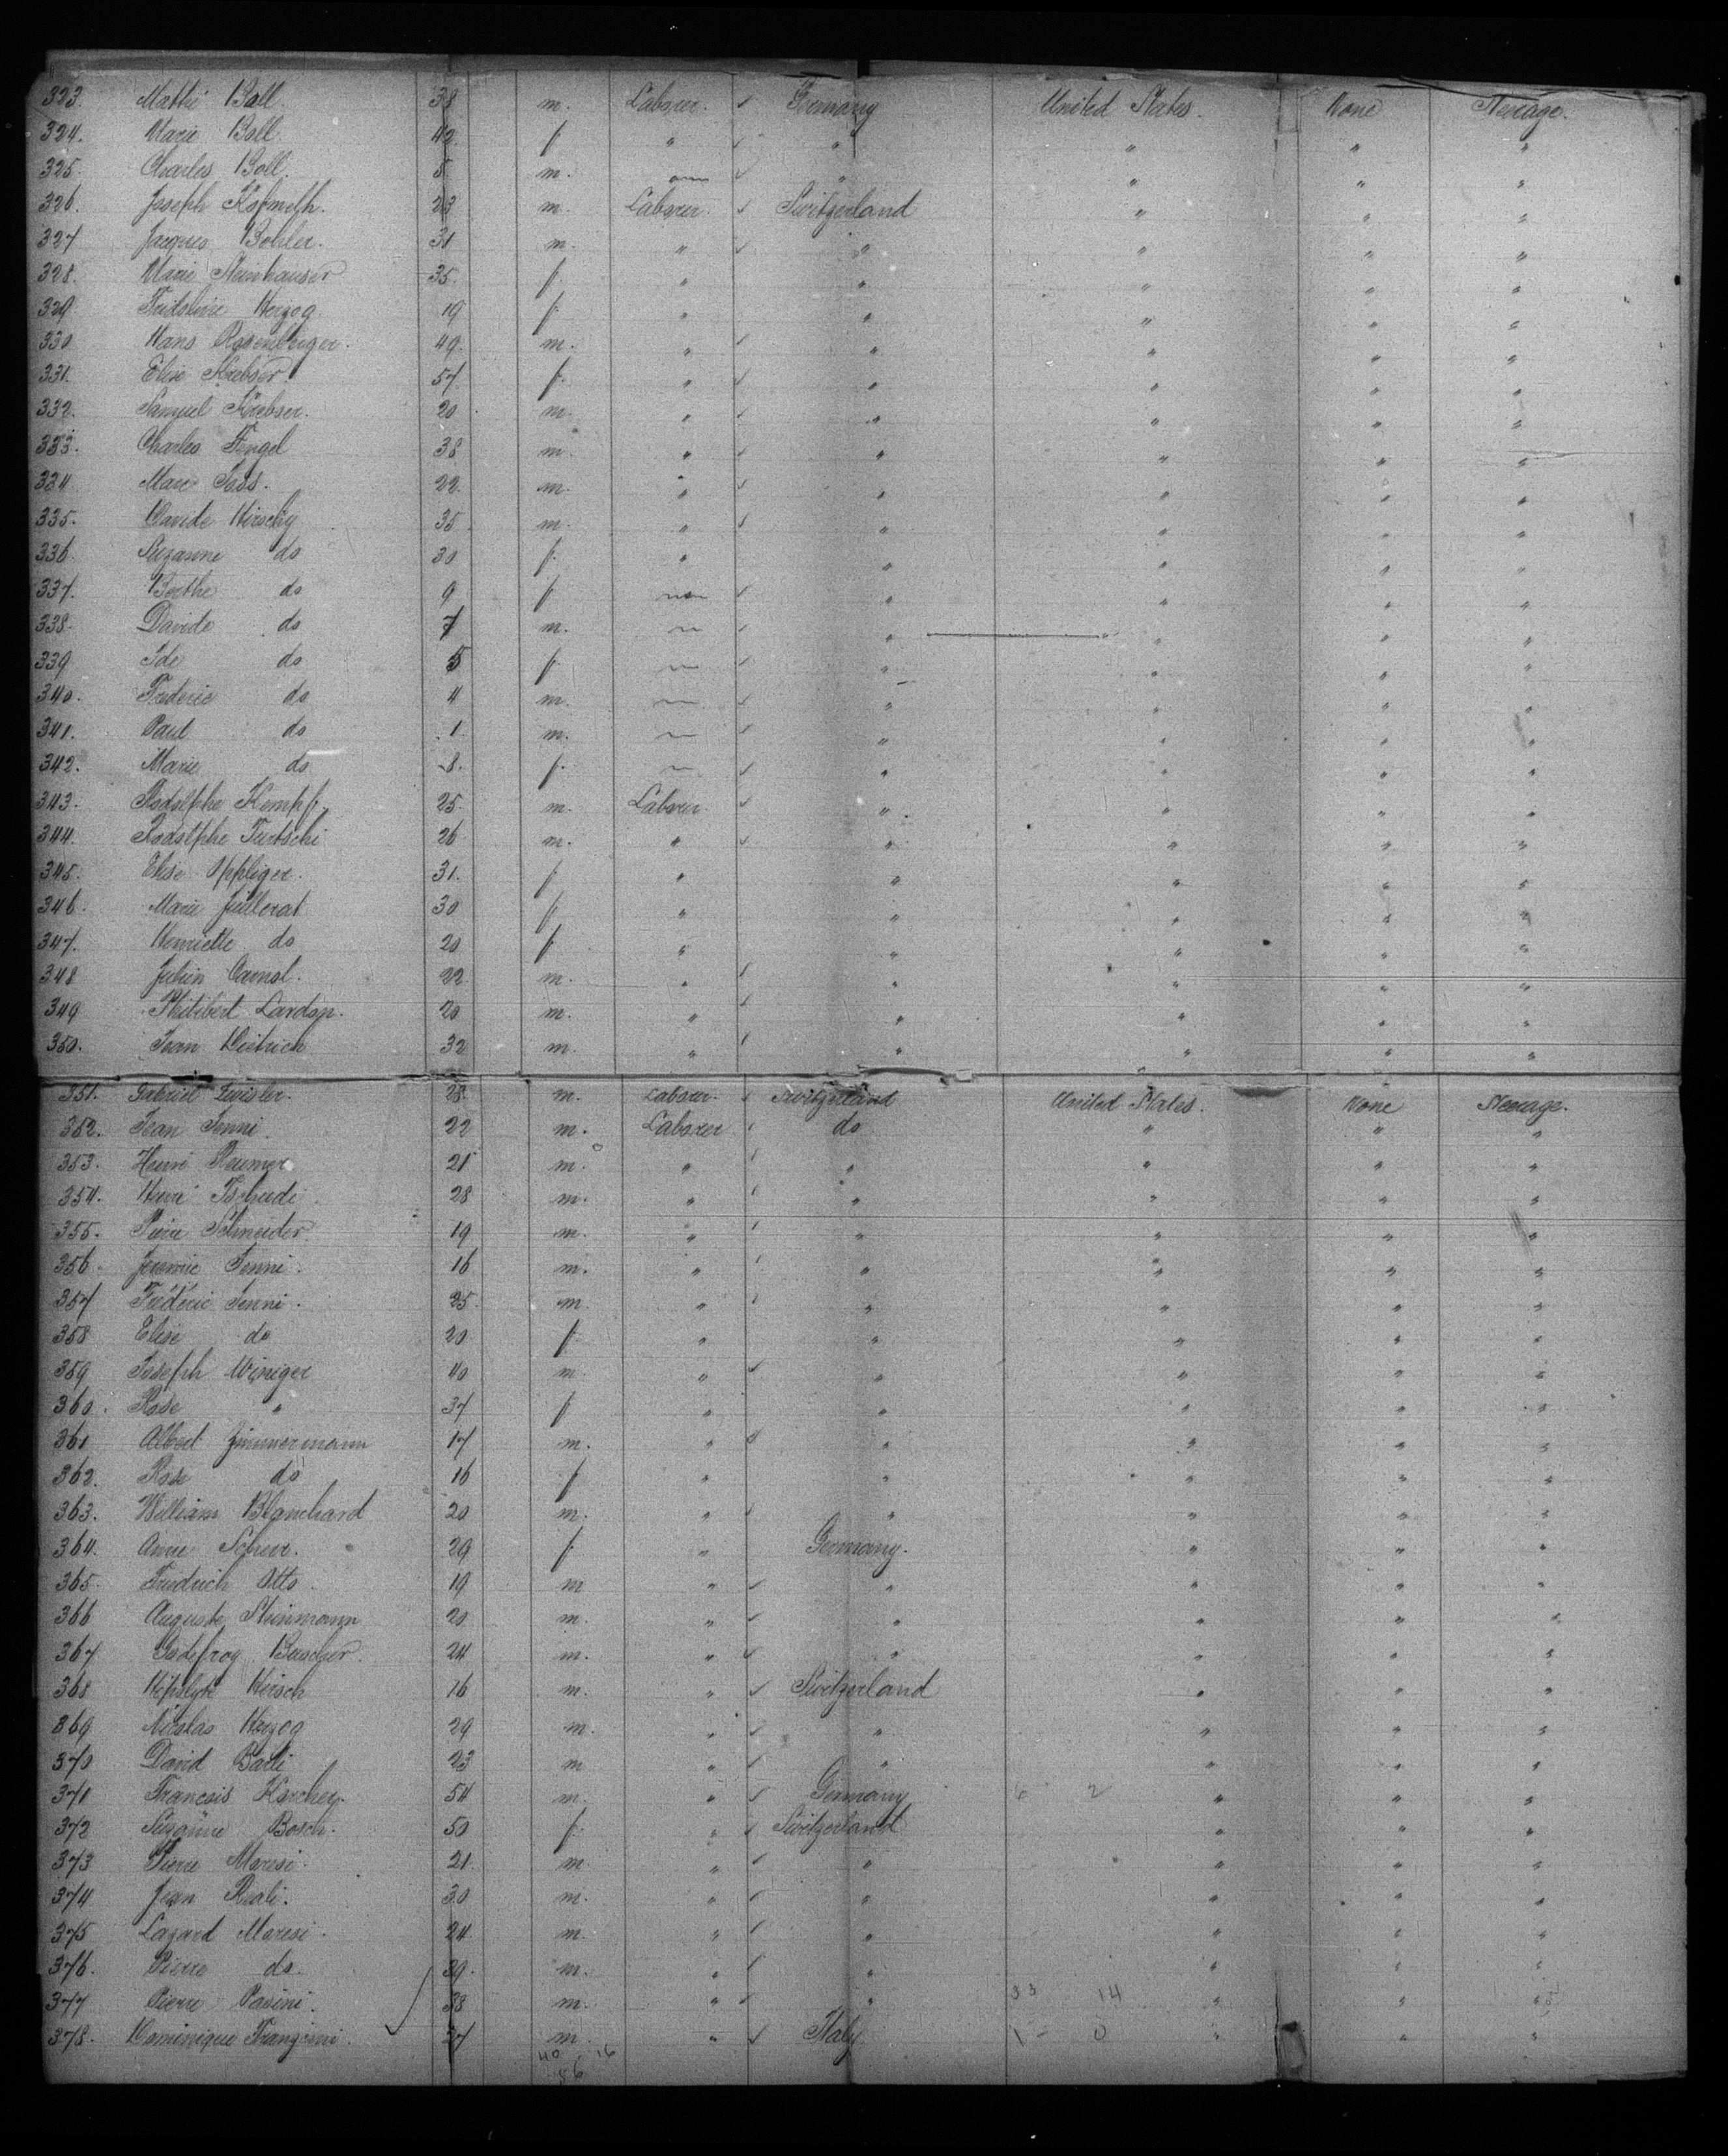 323. Mathi Boll. 38 m. Laborer. ✓ Germany United States. None Steerage.
324. Marie Boll. 42 f " ✓ " " " "
325. Charles Boll. 5. m. ✓ " " " "
326. Joseph 23 m. Laborer ✓ Switzerland " " "
327 Jacques Bohler. 31 m. " ✓ " " " "
328. Marie Steinhauser 35. f. " " " " "
329 Herzog 19 f. " " " " "
330 Hans Rosenberger. 49. m. " ✓ " " " "
331. Elise Krebser. 57 f. " ✓ " " " "
332. Samuel Krebser. 20 m. " ✓ " " " "
333. Charles 38 m. " ✓ " " " "
334 22 m. " ✓ " " " "
335. Davide Hirschy 35 m. " ✓ " " " "
336 Suzanne do 30 f. " " " " "
337. Berthe do 9 f ✓ " " " "
338. Davide do 7 m. ✓ " " " "
339 Ide do 5 f. ✓ " " " "
340. Frederic do 4 m. ✓ " " " "
341. Paul do 1 m. ✓ " " " "
342. Marie do 8. f. ✓ " " " "
343. Rodolphe Kempf. 25. m. Laborer. ✓ " " " "
344. Rodolphe Furtschi 26 m. " ✓ " " " "
345. Elise Oppliger. 31. f " " " " "
346. Marie Juillerat 30 f " " " " "
347. Henriette do 20 f " " " " "
348 Julien Camol. 22 m. " ✓ " " " "
349 Philibert 20 m. " ✓ " " " "
350. Jean Dietrich 32 m. " ✓ " " " "
351. Gabriel 28 m. Laborer. ✓ Switzerland United States. None Steerage.
352. Jean Jenni. 22 m. Laborer ✓ do " " "
353. Henri 21 m. " ✓ " " " "
354. Henri Tschudi 28 m. " ✓ " " " "
355. Pierre Schneider 19 m. " ✓ " " " "
356. Jeremie Jenni. 16 m. " ✓ " " " "
357 Frédéric Jenni. 25. m. " ✓ " " " "
358 Elise do 20 f. " " " " "
359 Joseph Winiger 40 m. " ✓ " " " "
360. Rose " 37 f " " " " "
361 Albert Zimmermann 17 m. " ✓ " " " "
362. Rose do 16 f " " " " "
363. William Blanchard 20 m. " ✓ " " " "
364. Anne 29 f. " Germany. " " "
365. Friedrich Otto 19 m " ✓ " " " "
366 Auguste Steinmann 20 m. " ✓ " " " "
367 Godefroy 24 m. " ✓ " " " "
368 Hipolyte Hirsch 16 m. " ✓ Switzerland " " "
369 Nicolas Herzog 29 m. " ✓ " " " "
370 David 23 m " ✓ " " " "
371 Francois Karcher. 54 m. " ✓ Germany 6 2 " " "
372 Bosch. 50 f. " ✓ Switzerland " " "
373 Pierre Maresi. 21. m. " ✓ " " " "
374 Jean Reali. 30 m. " ✓ " " " "
375 Lazard Maresi. 24 m. " ✓ " " " "
376. Pierre do. 39. m. " ✓ " " " "
377 Pierre Pasini. 38 m. " ✓ " 33 14 " " "
378. Dominique Franzoni ✓ 27 m. " ✓ Italy 1 - 0 " " "
40 16
56